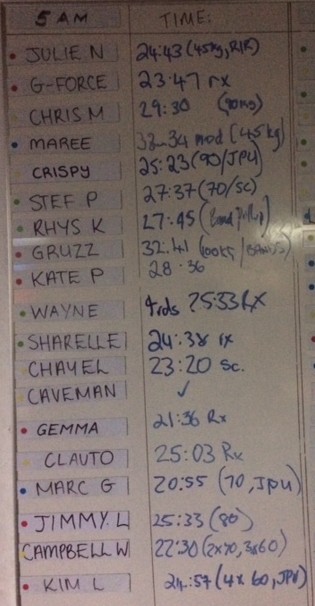 5 AM TIME:
JULIE N 24:43 (45kg, R1R)
G-FORCE 23:47 rx
CHRIS M 29:30 (90kg)
MAREE 34 mod (45kg)
CRISPY 25:23 (90/JPU)
STEF P 27:37 (70/sc)
RHYS K 27:45
GRUZZ 32:41 (100kg/
KATE P 28:36
WAYNE 4rds 25:33 RX
SHARELLE 24:38 rx
CHAYEL 23:20 Sc.
CAVEMAN ✓
GEMMA 21:36 Rx
CLAUTO 25:03 Rx
MARC G 20:55 (70, JPU)
JIMMY L 25:33 (80)
CAMPBELL W 22:30 (2x70, 3x60)
KIM L 24:57 (4x60, JPU)